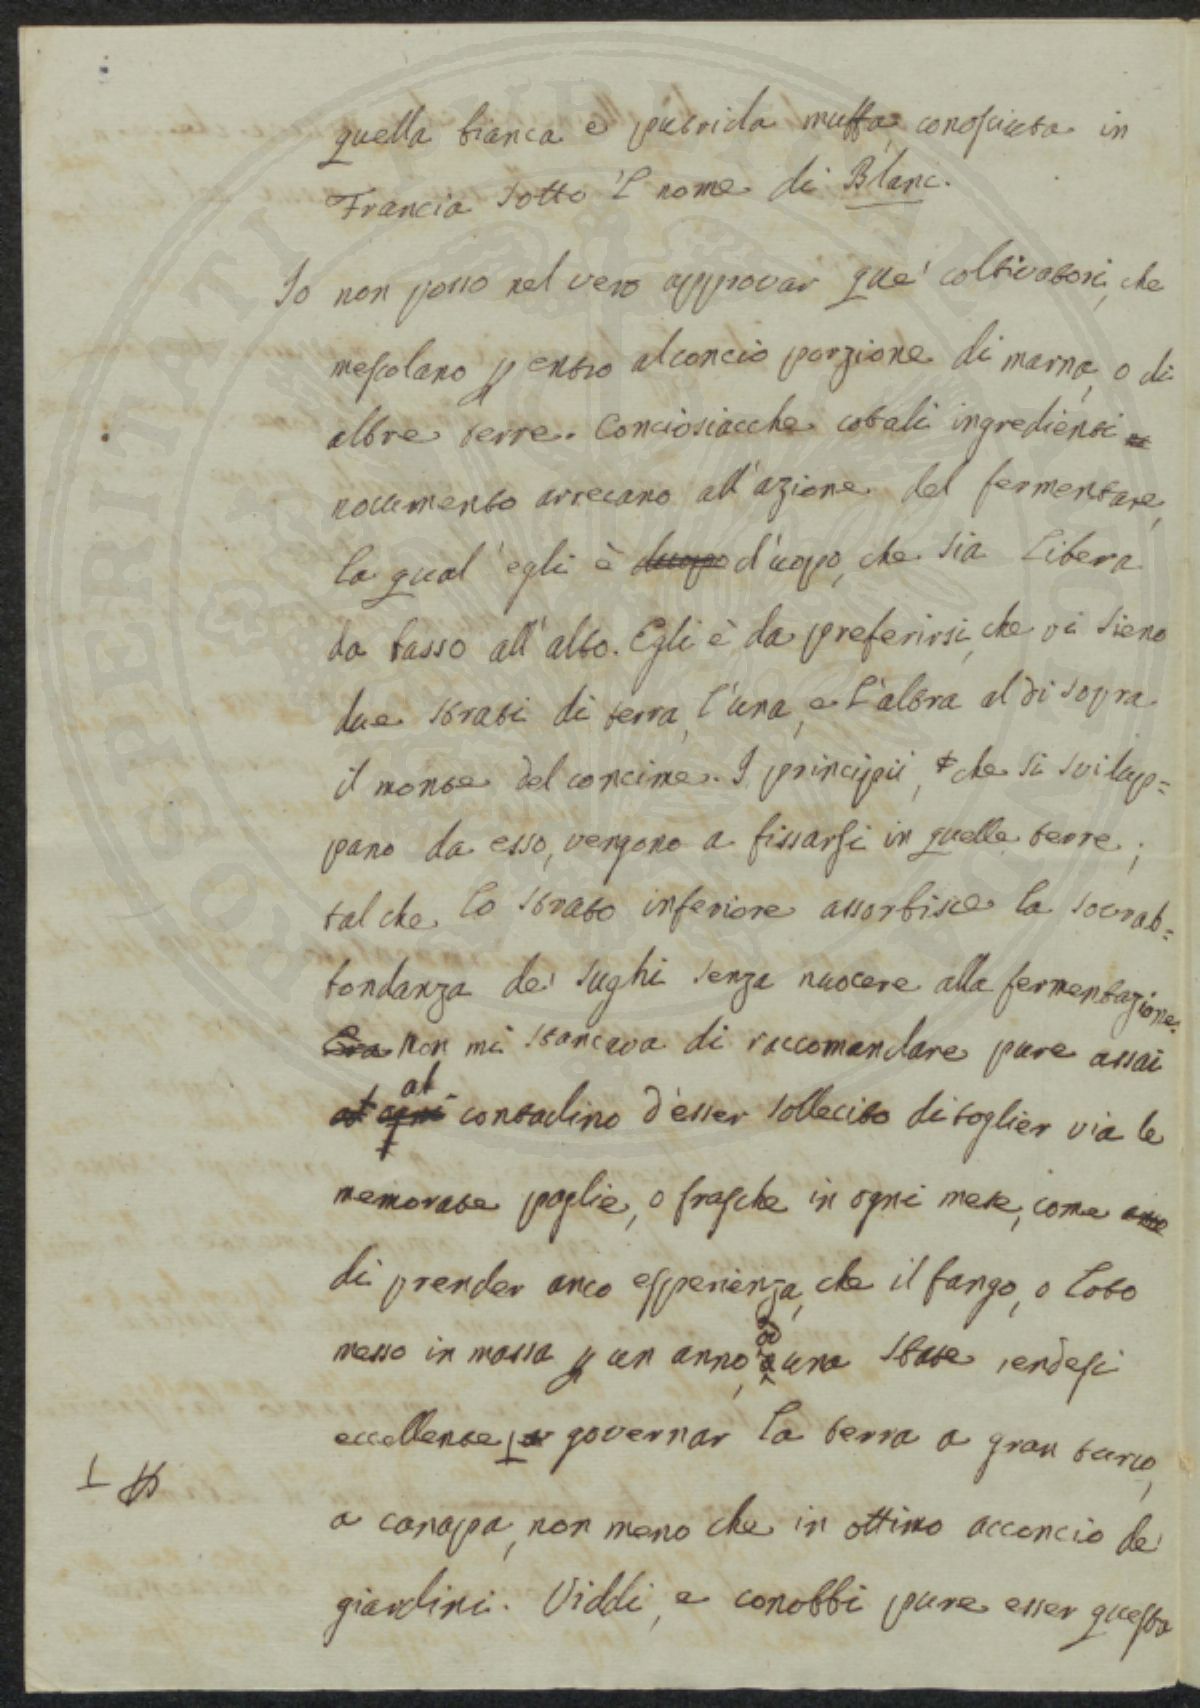 quella bianca e putrida muffa, conosciuta in
Francia sotto 'l nome di Blanc.
Io non posso nel vero approvar que' coltivatori, che
mescolano p entro al concio porzione di marna, o di
altre terre. Conciosiacche cotali ingredienti
nocumento arrecano all'azione del fermentare,
la qual' egli è duopo d'uopo, che sia libera
da basso all'alto. Egli è da preferirsi, che vi sieno
due strati di terra, l'una, e l'altra al di sopra
il monte del concime. I principii, che si svilup=
pano da esso, vengono a fissarsi in quelle terre;
tal che lo strato inferiore assorbisce la sovrab=
bondanza de' sughi senza nuocere alla fermentazione.
Era non mi stancava di raccomandare pure assai
at ogni al contadino d'esser sollecito di toglier via le
memorate paglie, o frasche in ogni mese, come
di prender anco esperienza, che il fango, o loto
messo in massa p un anno, od a una state rendesi
eccellente governar la terra a gran turco,
a canapa, non meno che in ottimo acconcio de'
giardini. Viddi, e conobbi pure esser questa
PROSPERITATI PUBLICAE